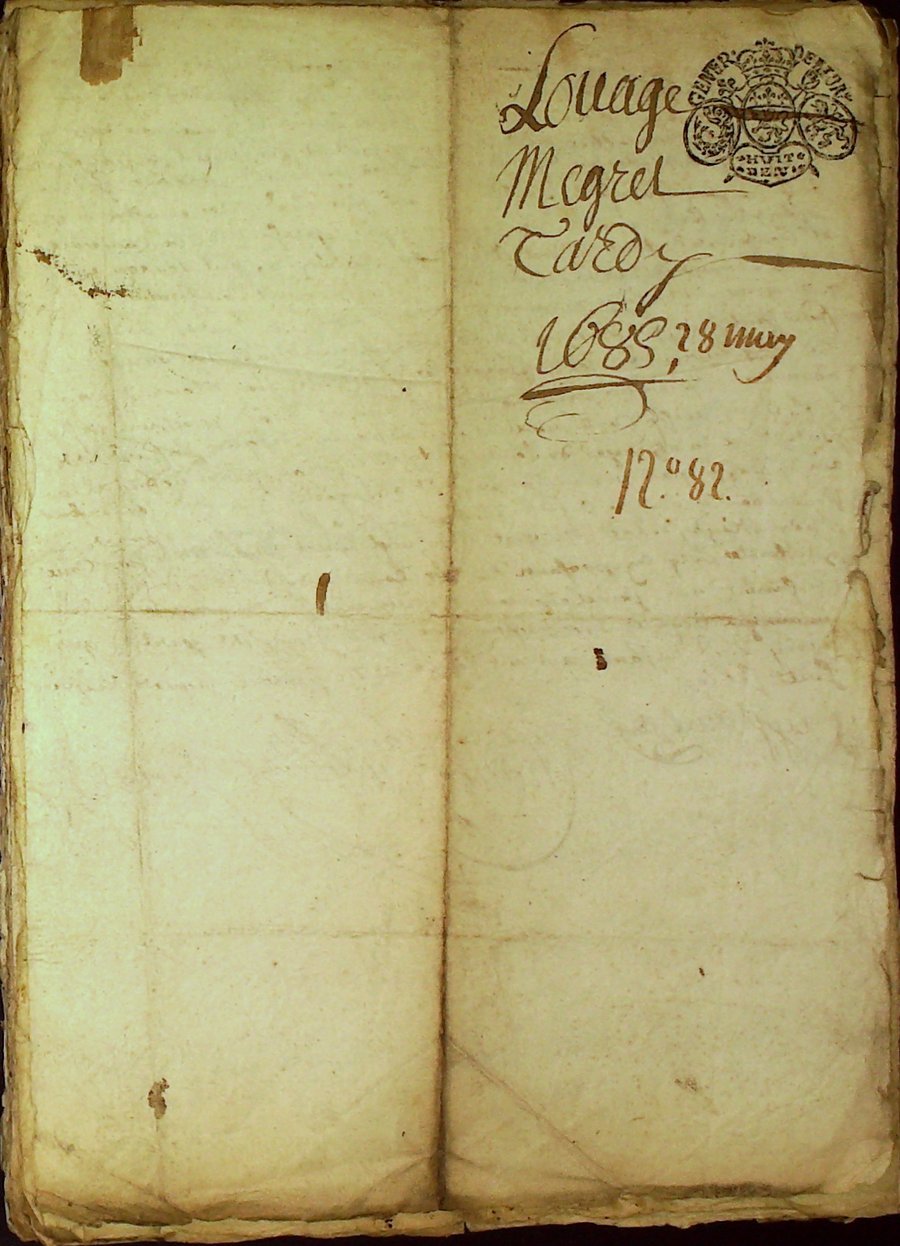 Louage
GENER. DE LYON
HUIT
DEN
Megret
Tardy
1685, 28 may
N.º 82.